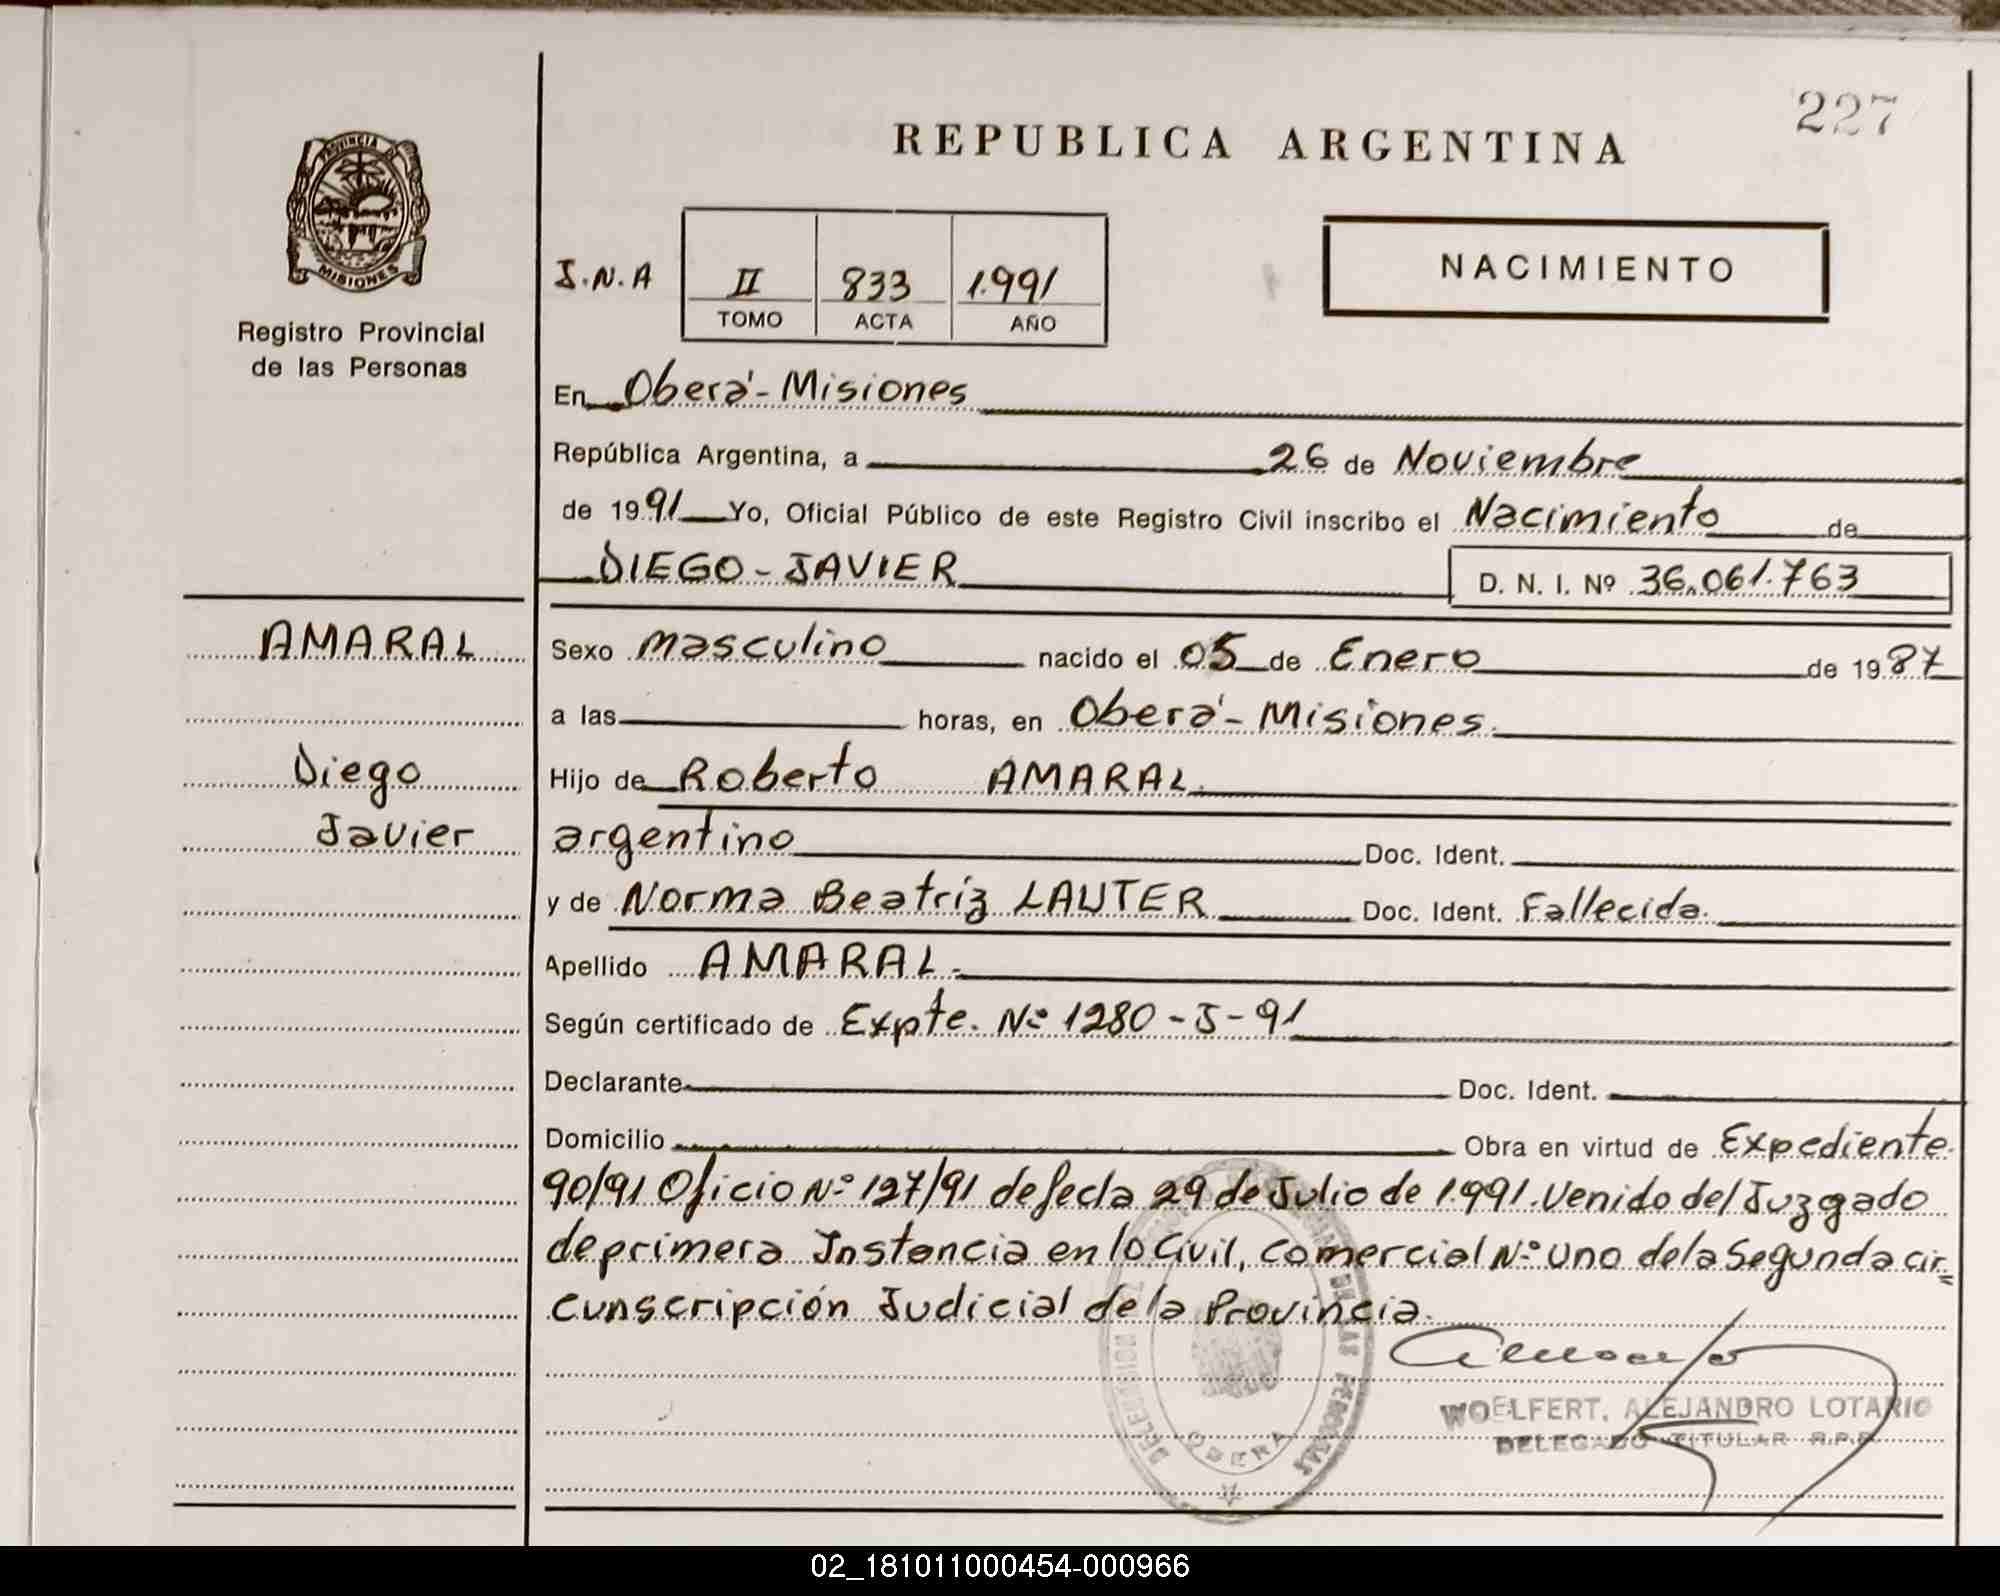 227
REPUBLICA ARGENTINA
PROVINCIA DE
MISIONES
Registro Provincial
de las Personas
J.N.A II 833 1.991
TOMO ACTA AÑO
NACIMIENTO
En Oberá - Misiones
República Argentina, a 26 de Noviembre
de 1991 Yo, Oficial Público de este Registro Civil inscribo el Nacimiento de
DIEGO - JAVIER D. N. I. Nº 36.061.763
AMARAL
Sexo masculino nacido el 05 de Enero de 1987
a las horas, en Oberá - Misiones.
Diego
Hijo de Roberto AMARAL.
Javier
argentino Doc. Ident.
y de Norma Beatriz LAUTER Doc. Ident. Fallecida.
Apellido AMARAL.
Según certificado de Expte. Nº 1280 - J - 91
Declarante Doc. Ident.
Domicilio Obra en virtud de Expediente
90/91 Oficio Nº 127/91 de fecla 29 de Julio de 1.991. Venido del Juzgado
de primera Instancia en lo Civil, comercial Nº uno de la Segunda cir=
cunscripción Judicial de la Provincia.
WOELFERT, ALEJANDRO LOTARIO
DELEGADO TITULAR R.P.P.
DE LAS PERSONAS
OBERA
02_181011000454-000966